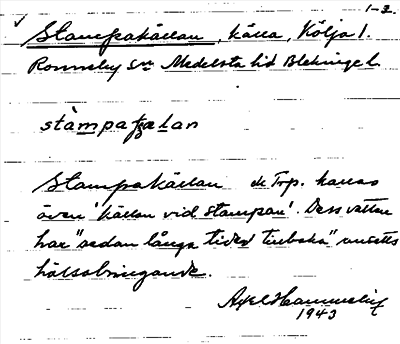 1-3.
Stampakällan, källa, Kölja 1.
Ronneby sn Medelsta hd Blekinge l.
stàmpaɕälan
Stampakällan de Trp. kallas
även 'källan vid stampan'. Dess vatten
har "sedan långa tider tillbaka" ansetts
hälsobringande.
Axel Hammerlin
1943